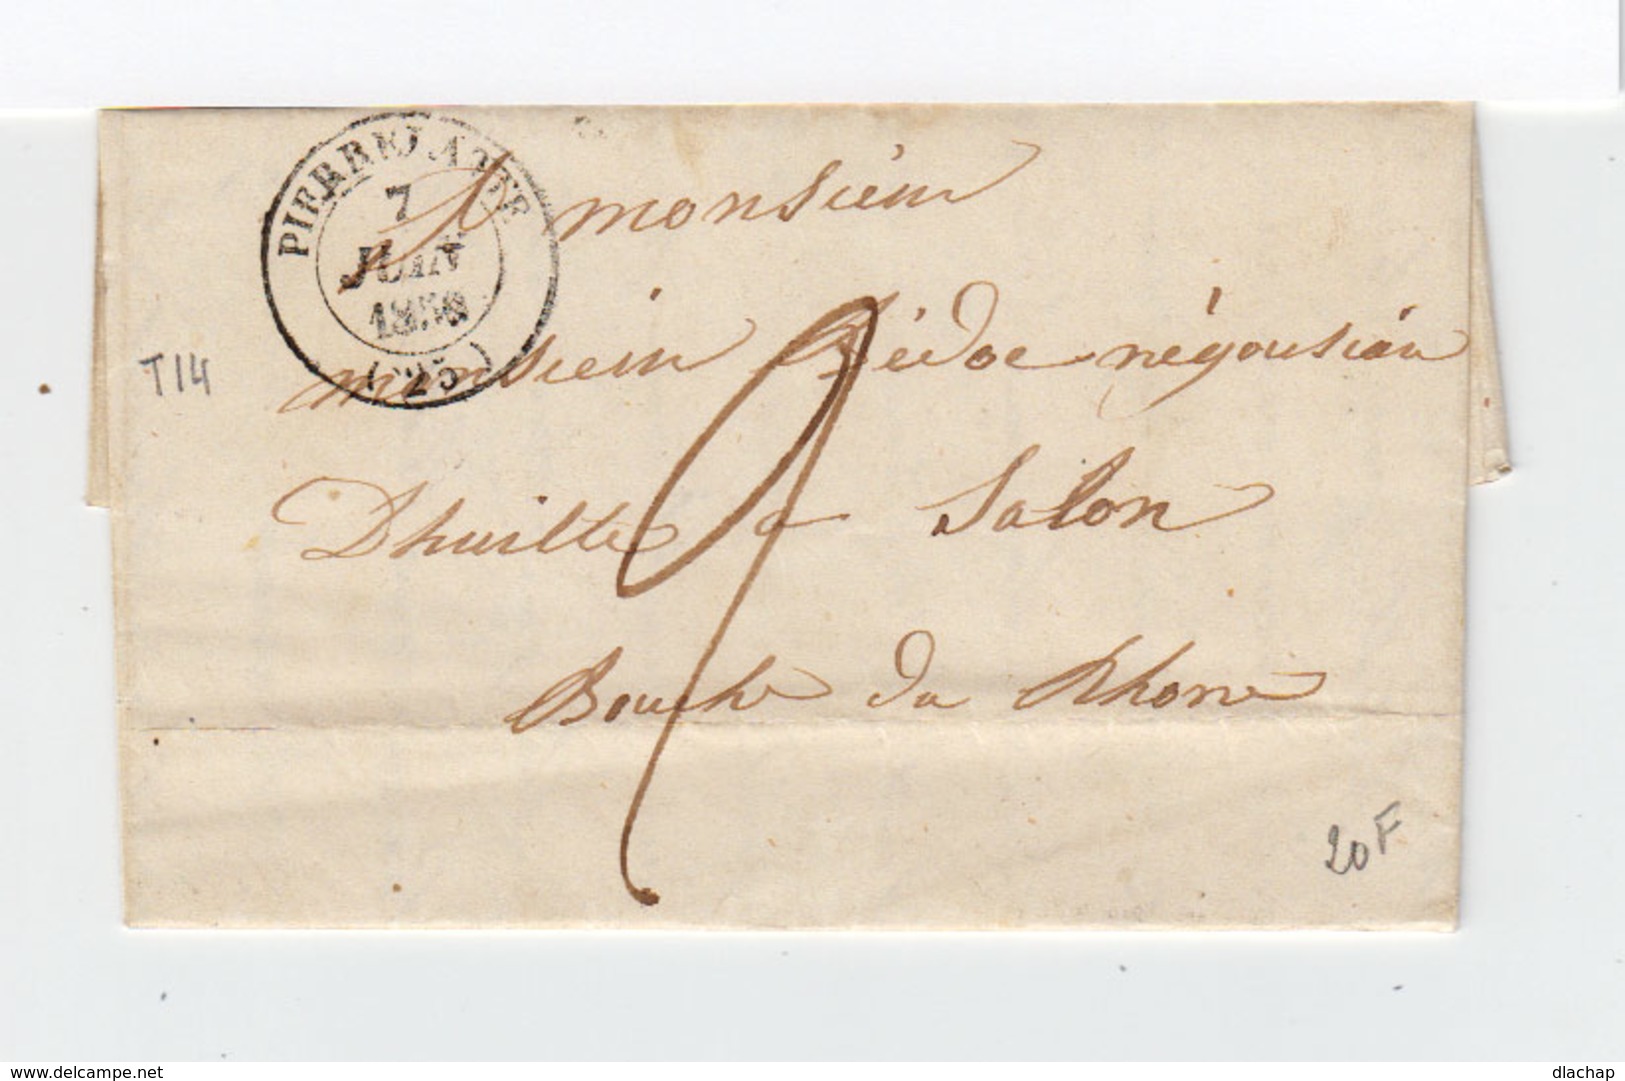 PIERRELATTE
7
JUIN
(25)
A monsieur
monsieur Bédoc négousian
T14
Dhuille a Salon
Bouche du Rhone
20F
www.delcampe.net
dlachap